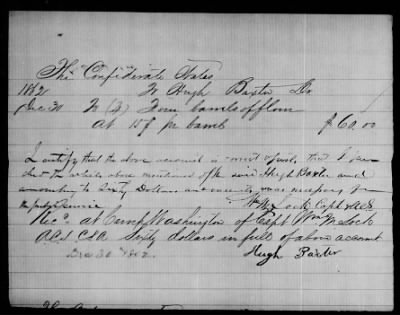 The Confederate States
1862 To Hugh Baxter Dr
Dec 30 To (4) Four barrels of flour
at 15$ per barrel $60.00
I certify that the above account is correct & just, that I
the above mentioned of the said Hugh Baxter and
amounting to Sixty Dollars and was necessary for
the public service
Wm Lock Capt ACS
Recd at Camp Washington of Capt Wm Lock
ACS CSA Sixty dollars in full of above account
Dec 30 1862
Hugh Baxter